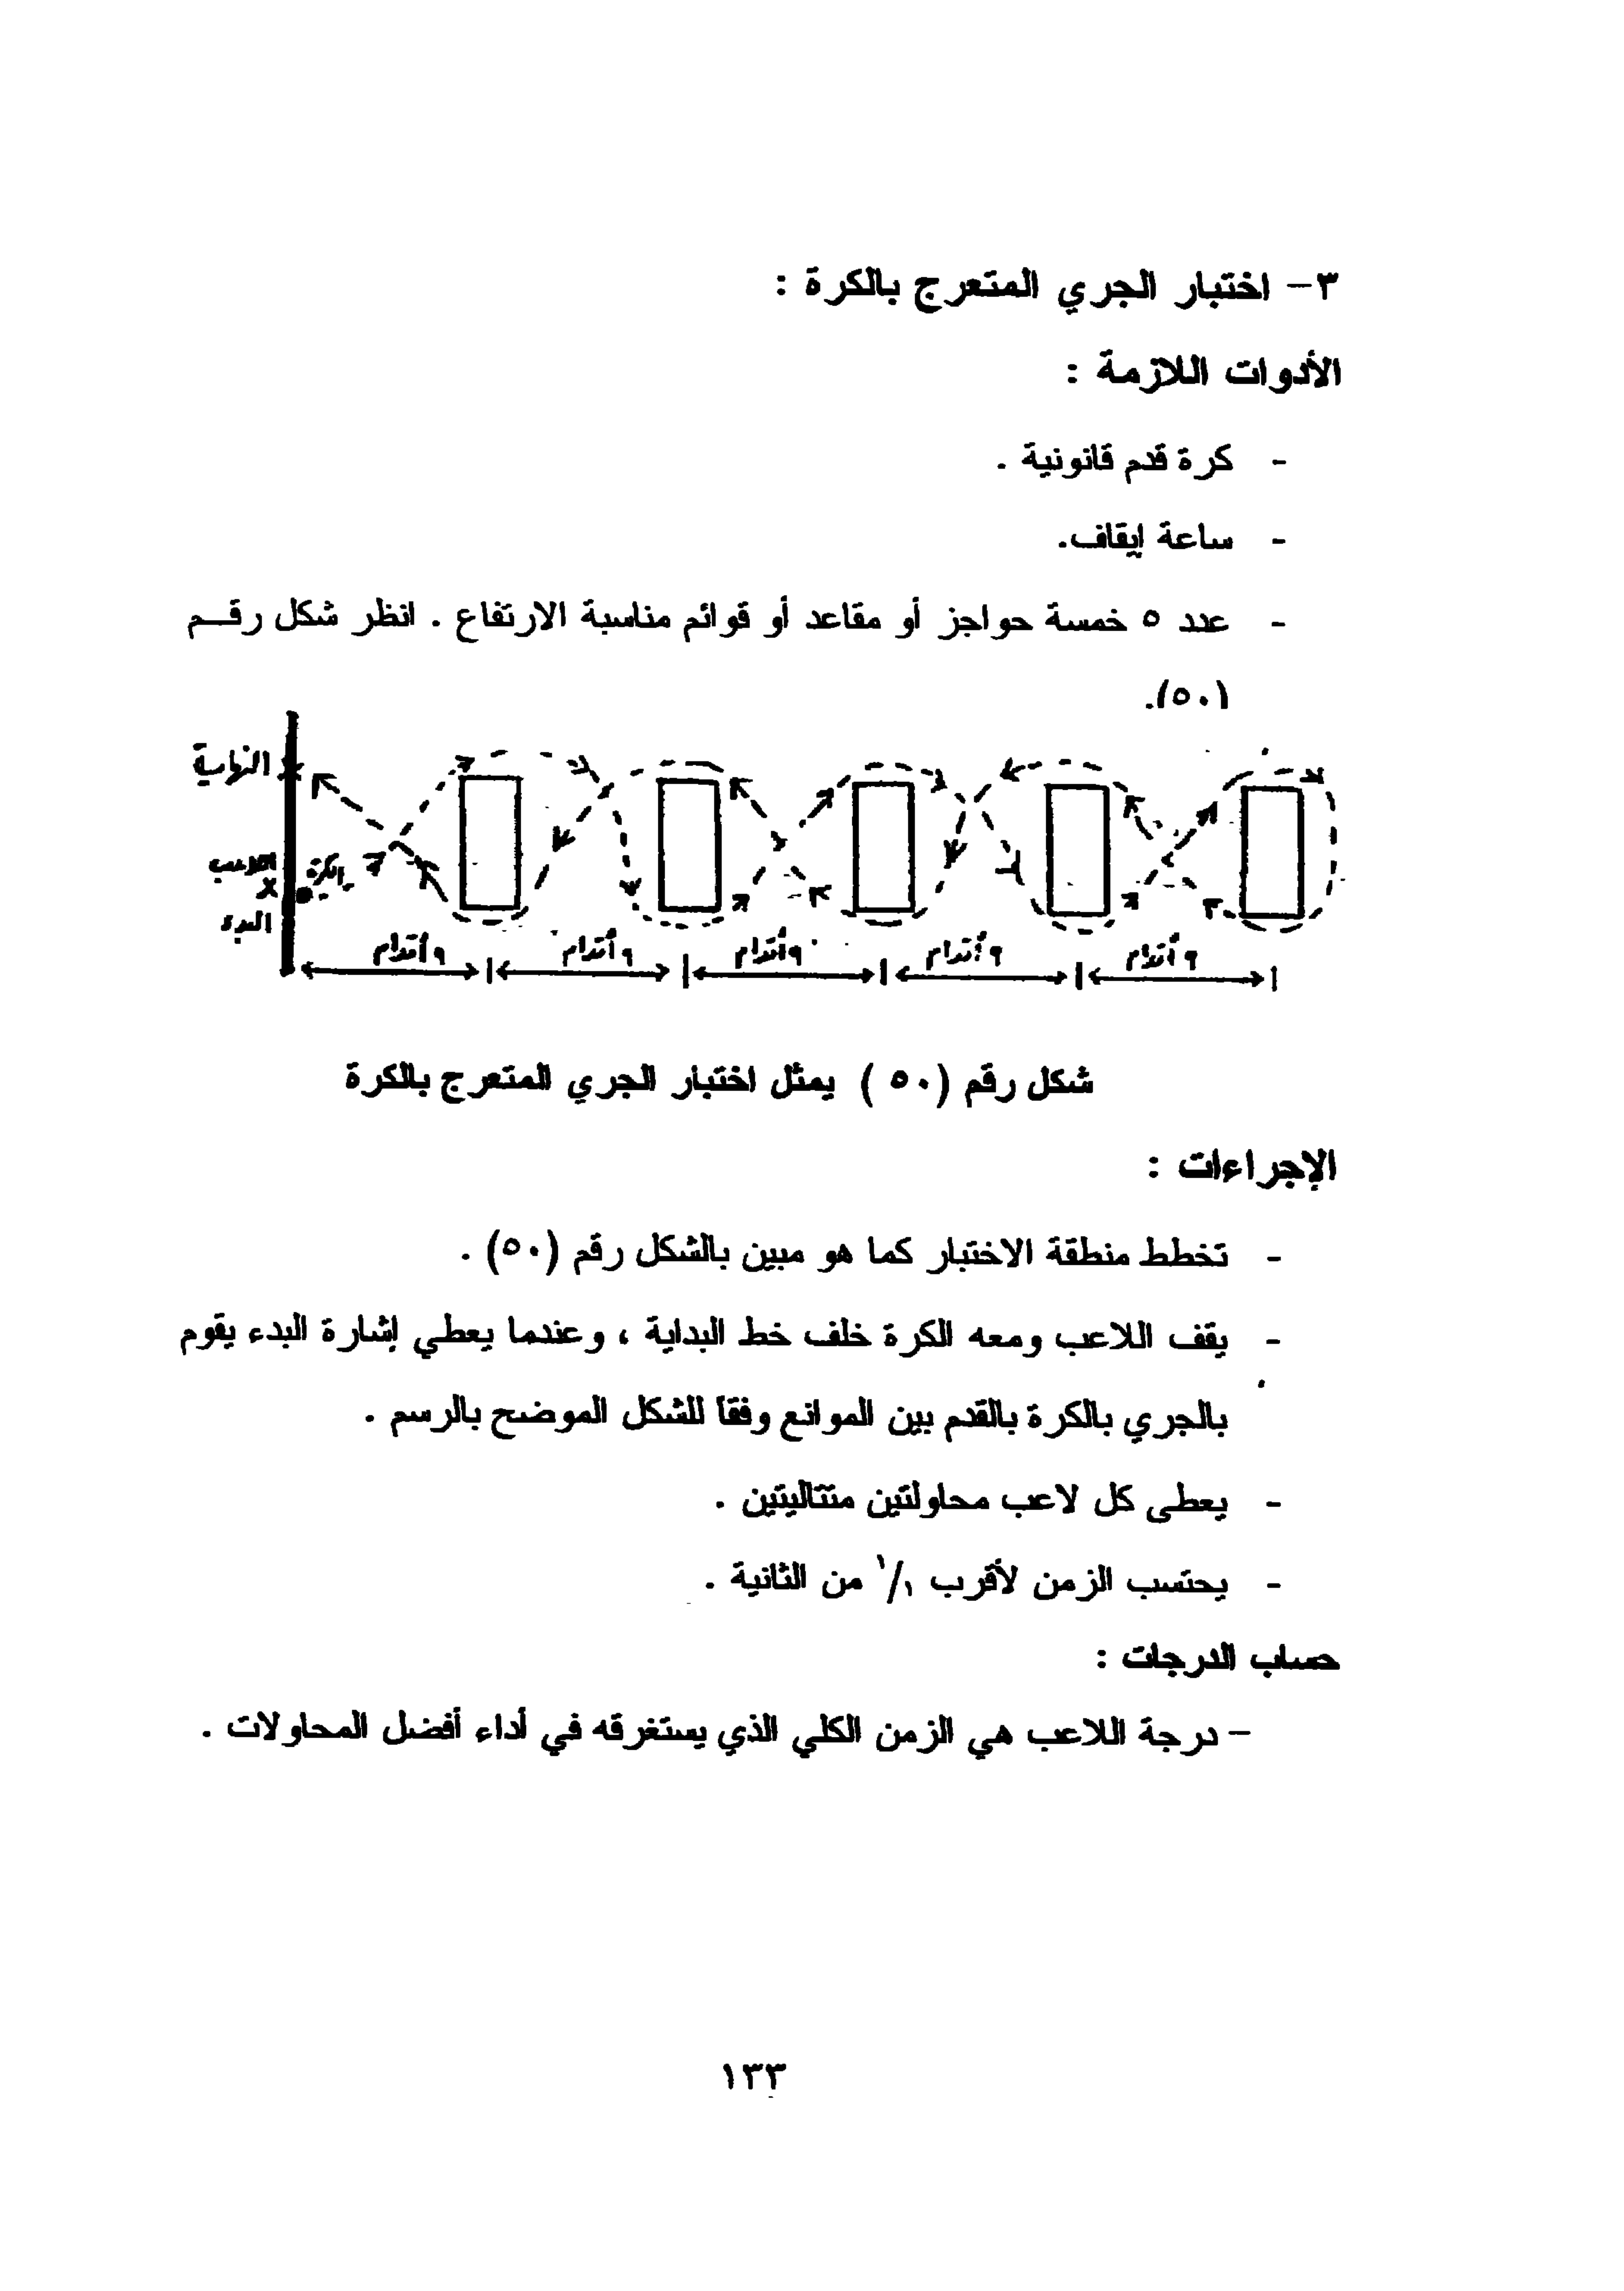 ٣- اختبار الجري المتعرج بالكرة :
الأدوات اللازمة :
- كرة قدم قانونية .
- ساعة إيقاف.
- عدد ٥ خمسة حواجز أو مقاعد أو قوائم مناسبة الارتفاع . انظر شكل رقم
(٥٠).
النهاية
اللاعب
الكرة
x
البدء
٩ أقدام ٩ أقدام ٩ أقدام ٩ أقدام ٩ أقدام
شكل رقم (٥٠) يمثل اختبار الجري المتعرج بالكرة
الإجراءات :
- تخطط منطقة الاختبار كما هو مبين بالشكل رقم (٥٠) .
- يقف اللاعب ومعه الكرة خلف خط البداية ، وعندما يعطي إشارة البدء يقوم
بالجري بالكرة بالقدم بين الموانع وفقا للشكل الموضح بالرسم .
- يعطى كل لاعب محاولتين متتاليتين .
- يحتسب الزمن لأقرب ١/١ من الثانية .
حساب الدرجات :
- درجة اللاعب هي الزمن الكلي الذي يستغرقه في أداء أفضل المحاولات .
١٣٣